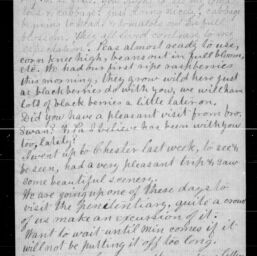 blossom. They all lived continue to my
expectation. Peas almost ready to use,
corn knee high, beans out in full bloom,
etc. We had our first ripe raspberries
this morning, they grow wild here just
as blackberries do with you, we will have
lots of blackberries a little later on.
Did you have a pleasant visit from bro.
Swan? believe has been with you
too, lately?
I went up to Chester last week, to see &
be seen, had a very pleasant trip & saw
some beautiful scenery.
We are going up one of these days to
visit the Penitentiary, quite a crowd
of us make an excursion of it.
Want to wait until Min comes if it
will not be putting it off too long.